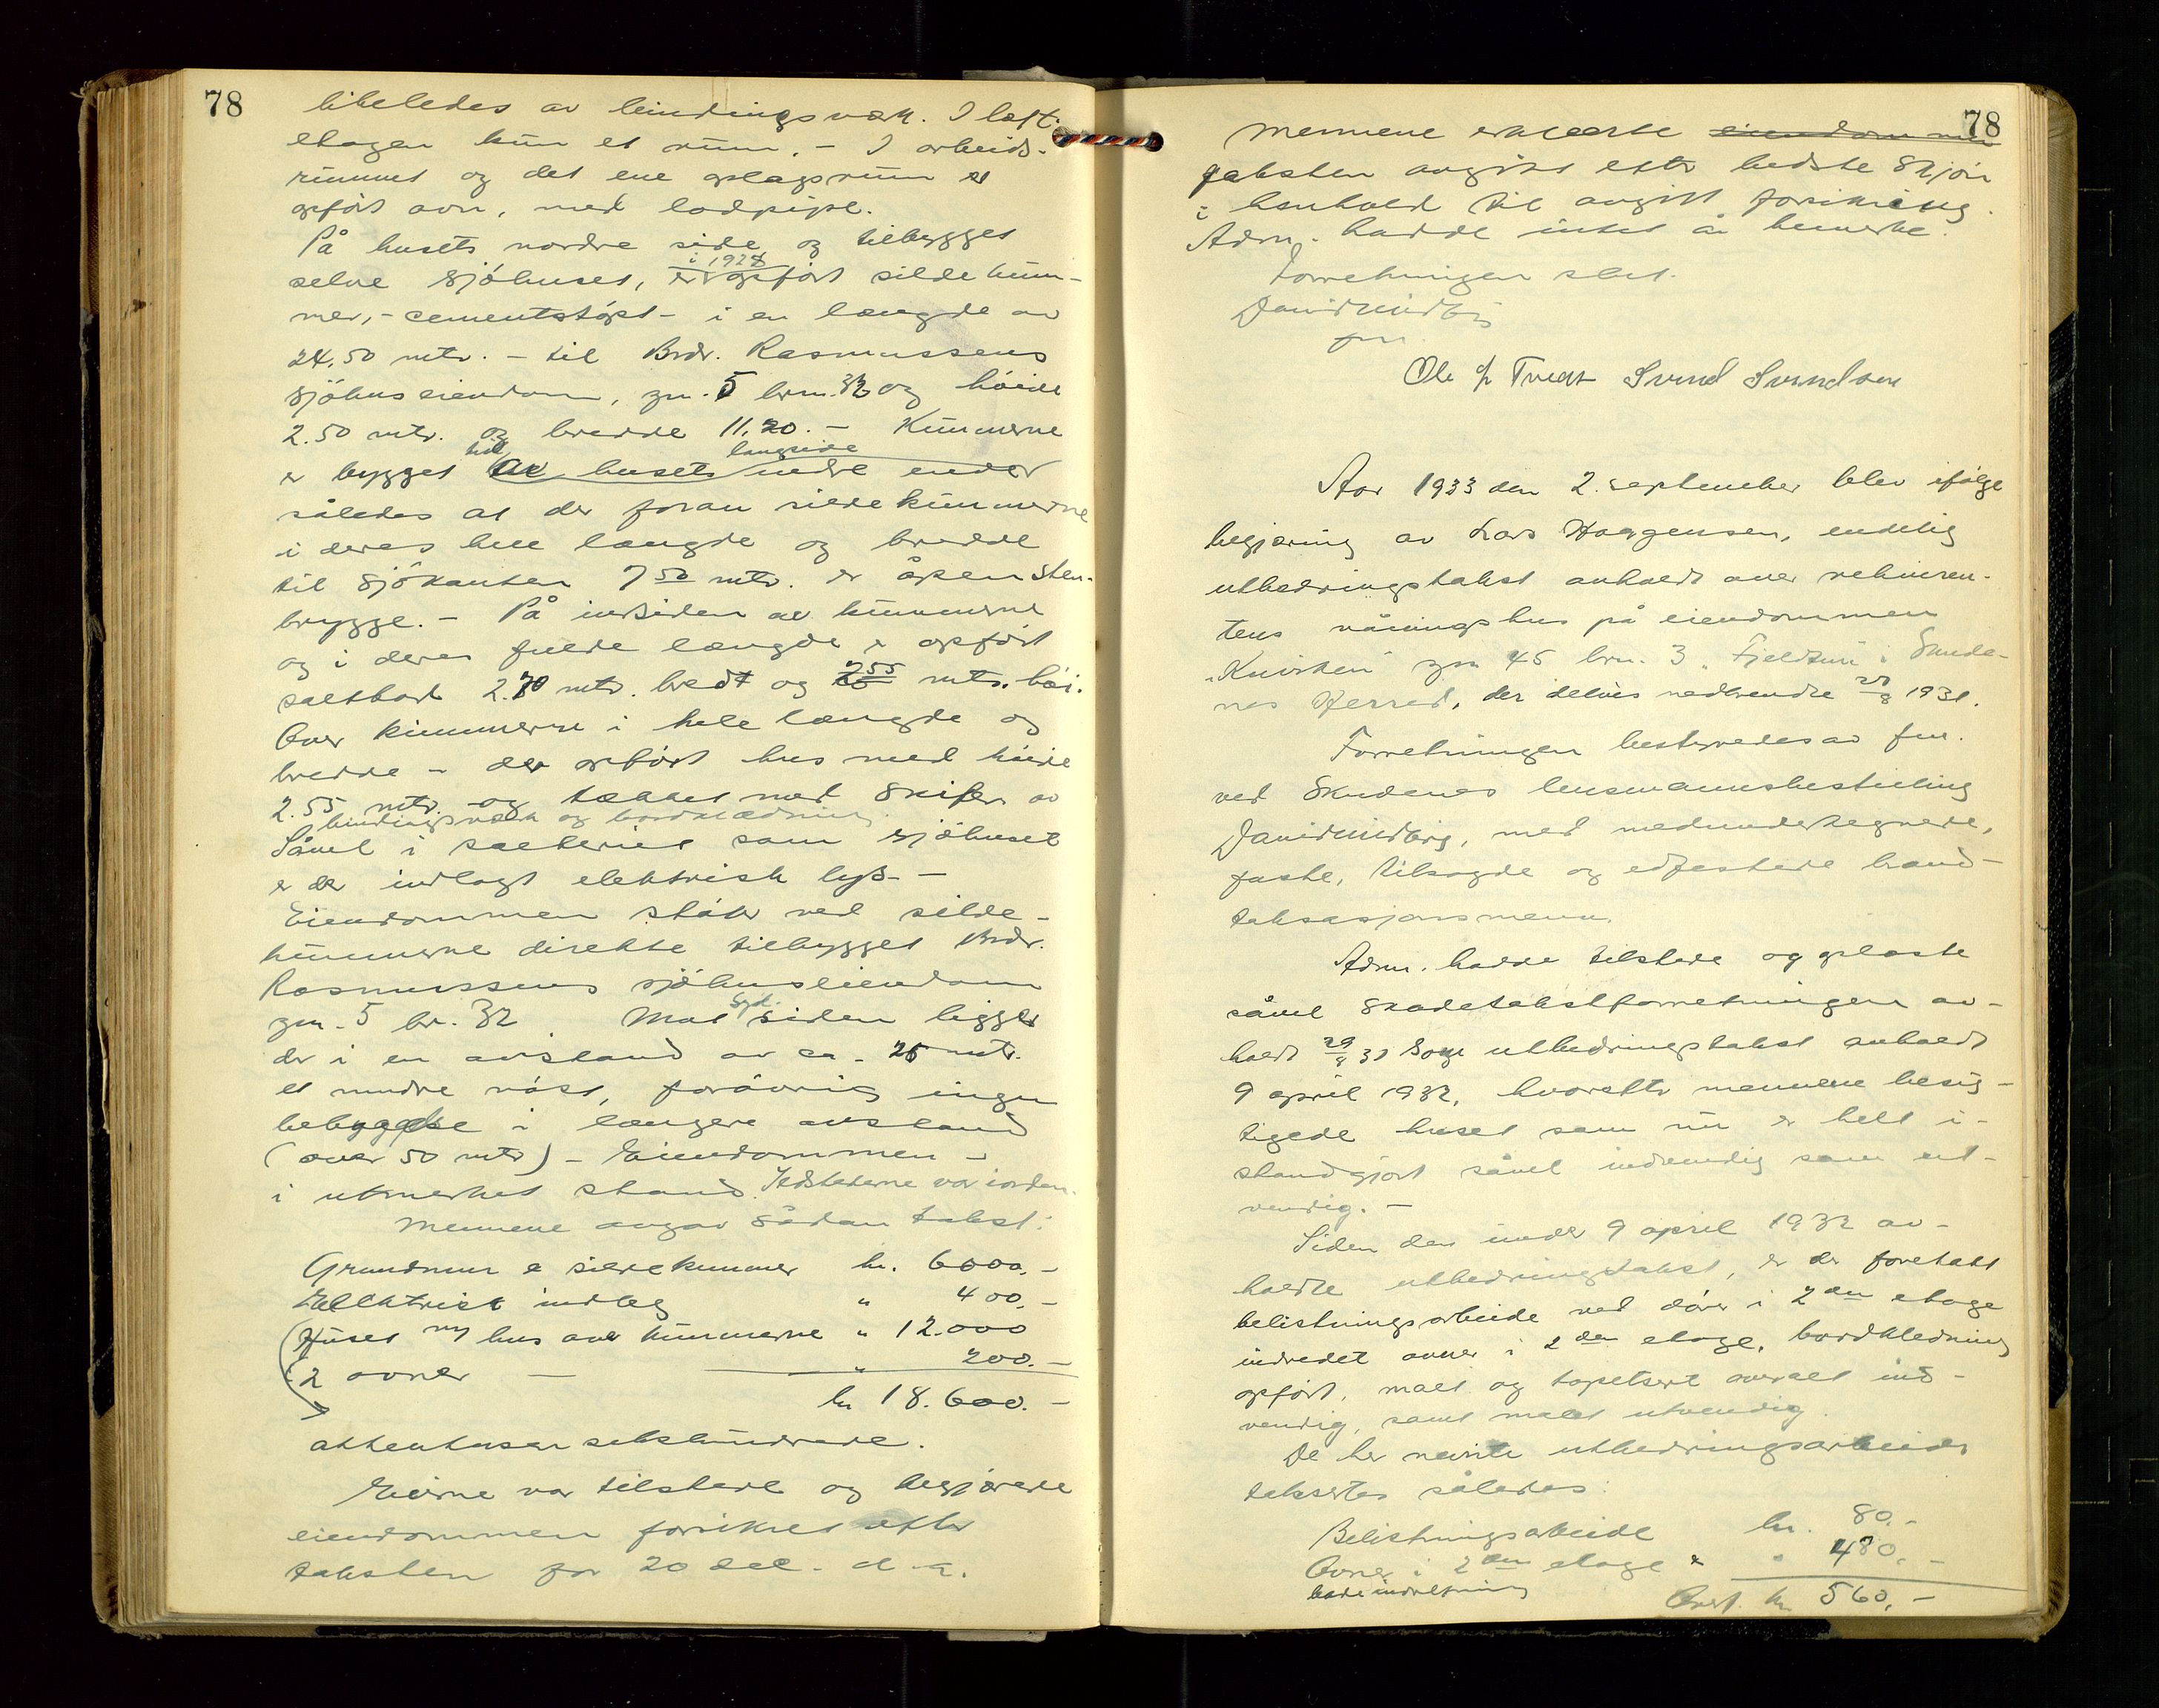 78
likeledes av bindingsverk. I loft-
etagen kun et rum. - I arbeids-
rummet og det ene oplagsrum er
opført ovn, med lodpipe.
På husets nordre side og tilbygget
i 1928
selve sjöhuset, er opført silde küm-
mer, - cementstøpt - i en længde av
24,50 mtr. - til Brdr. Rasmussens
sjöhuseiendom, gn. 5 brn. 32 og höide
2.50 mtr. og bredde 11.20. - Kümmerne
til langside
er bygget av husets indre ender
således at der foran sildekümmerne
i deres hele længde og bredde
til sjökanten 7 50 mtr. er åpen sten-
brygge. - På indsiden av kümmerne
og i deres fulde længde er opført
saltbod 2.70 mtr. bredt og 2 55 mtr. høi.
Over kümmerne i hele længde og
bredde - der opført hus med höide
2.55 mtr. og tækket med skifer av
bindingsverk og bordklædning
Såvel i salteriet som sjöhuset
er der indlagt elektrisk lys. -
Eiendommen støter ved silde-
kümmerne direkte tilbygget Brdr.
Rasmussens sjöhuseiendom
gn. 5 br. 32. Mot Syd siden ligger
der i en avstand av ca. 25 mtr.
et mindre nöst, forövrig ingen
bebyggelse i længere avstand
(over 50 mtr) - Eiendommen -
i utmerket stand. Ildstederne var i orden.
Mennene avgav sådan takst:
Grundmur & sildekummer kr. 6000.-
Ellektrisk indleg " 400.-
Huset m/ hus over kümmerne " 12.000
2 ovner - " 200.-
kr 18.600.-
attentusen sekshundrede.
Eierne var tilstede og begjærede
eiendommen forsikret efter
taksten for 20 del. d.a.
78
Mennene erklærte eiendommen
taksten avgitt efter bedste skjön
i henhold til avgitt forsikring.
Adm. hadde intet å bemerke.
Forretningen slut.
David Midbö
fm
Ole O. Tvedt Svend Svendsen
Aar 1933 den 2. september blev ifølge
begjæring av Lars Haagensen, endelig
utbedringstakst avholdt over rekviren-
tens våningshus på eiendommen
"Kvirken" gn 45 brn. 3 "Fjeldtun" i Skude-
nes Herred, der delvis nedbrendte 28/8 1931.
Forretningen bestyredes av fm.
ved Skudenes lensmannsbestilling
David Midbö, med medundertegnede,
faste, tilsagde og edfestede brand-
taksasjonsmenn.
Adm. hadde tilstede og oplæste
såvel skadetakstforretningen av-
holdt 29/8 31 som utbedringstakst avholdt
9 april 1932, hvorefter mennene besig-
tigede huset som nu er helt i-
standgjort såvel indvendig som ut-
vendig. -
Siden den under 9 april 1932 av-
holdte utbedringstakst, er der foretatt
belistningsarbeide ved dörer i 2 den etage
indredet ovner i 2 den etage, bordkledning
opført, malt og tapetsert overalt ind-
vendig, samt malet utvendig.
De her nevnte utbedringsarbeider
taksertes således:
Belistningsarbeide kr. 80.-
Ovner i 2 den etage & " 480.-
bordindretning
Overf. kr 560.-